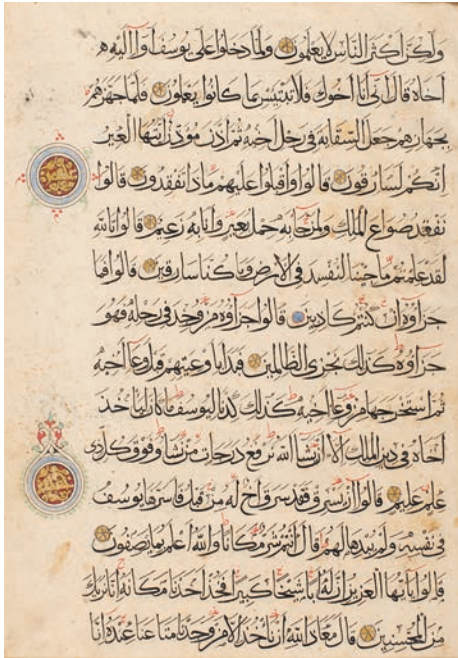 ولكن اكثر الناس لا يعلمون ولما دخلوا على يوسف اوا اليه
اخاه قال انى انا اخوك فلا تبتئس بما كانوا يعملون فلما جهزهم
بجهازهم جعل السقاية فى رحل اخيه ثم اذن مؤذن ايتها العير
انكم لسارقون قالوا واقبلوا عليهم ماذا تفقدون قالوا
نفقد صواع الملك ولمن جا به حمل بعير وانا به زعيم قالوا تالله
لقد علمتم ما جينا لنفسد فى الارض وما كنا سارقين قالوا فما
جزاوه ان كنتم كاذبين قالوا جزاوه من وجد فى رحله فهو
جزاوه كذلك نجزى الظالمين فبدا باوعيتهم قبل وعا اخيه
ثم استخرجها من وعا اخيه كذلك كدنا ليوسف ما كان لياخذ
اخاه فى دين الملك الا ان يشا الله نرفع درجات من نشا وفوق كل ذى
علم عليم قالوا ان يسرق فقد سرق اخ له من قبل فاسرها يوسف
فى نفسه ولم يبدها لهم قال انتم شر مكانا والله اعلم بما تصفون
قالوا يا ايها العزيز ان له ابا شيخا كبيرا فخذ احدنا مكانه انا نريك
من المحسنين قال معاذ الله ان ناخذ الا من وجدنا متاعنا عنده انا